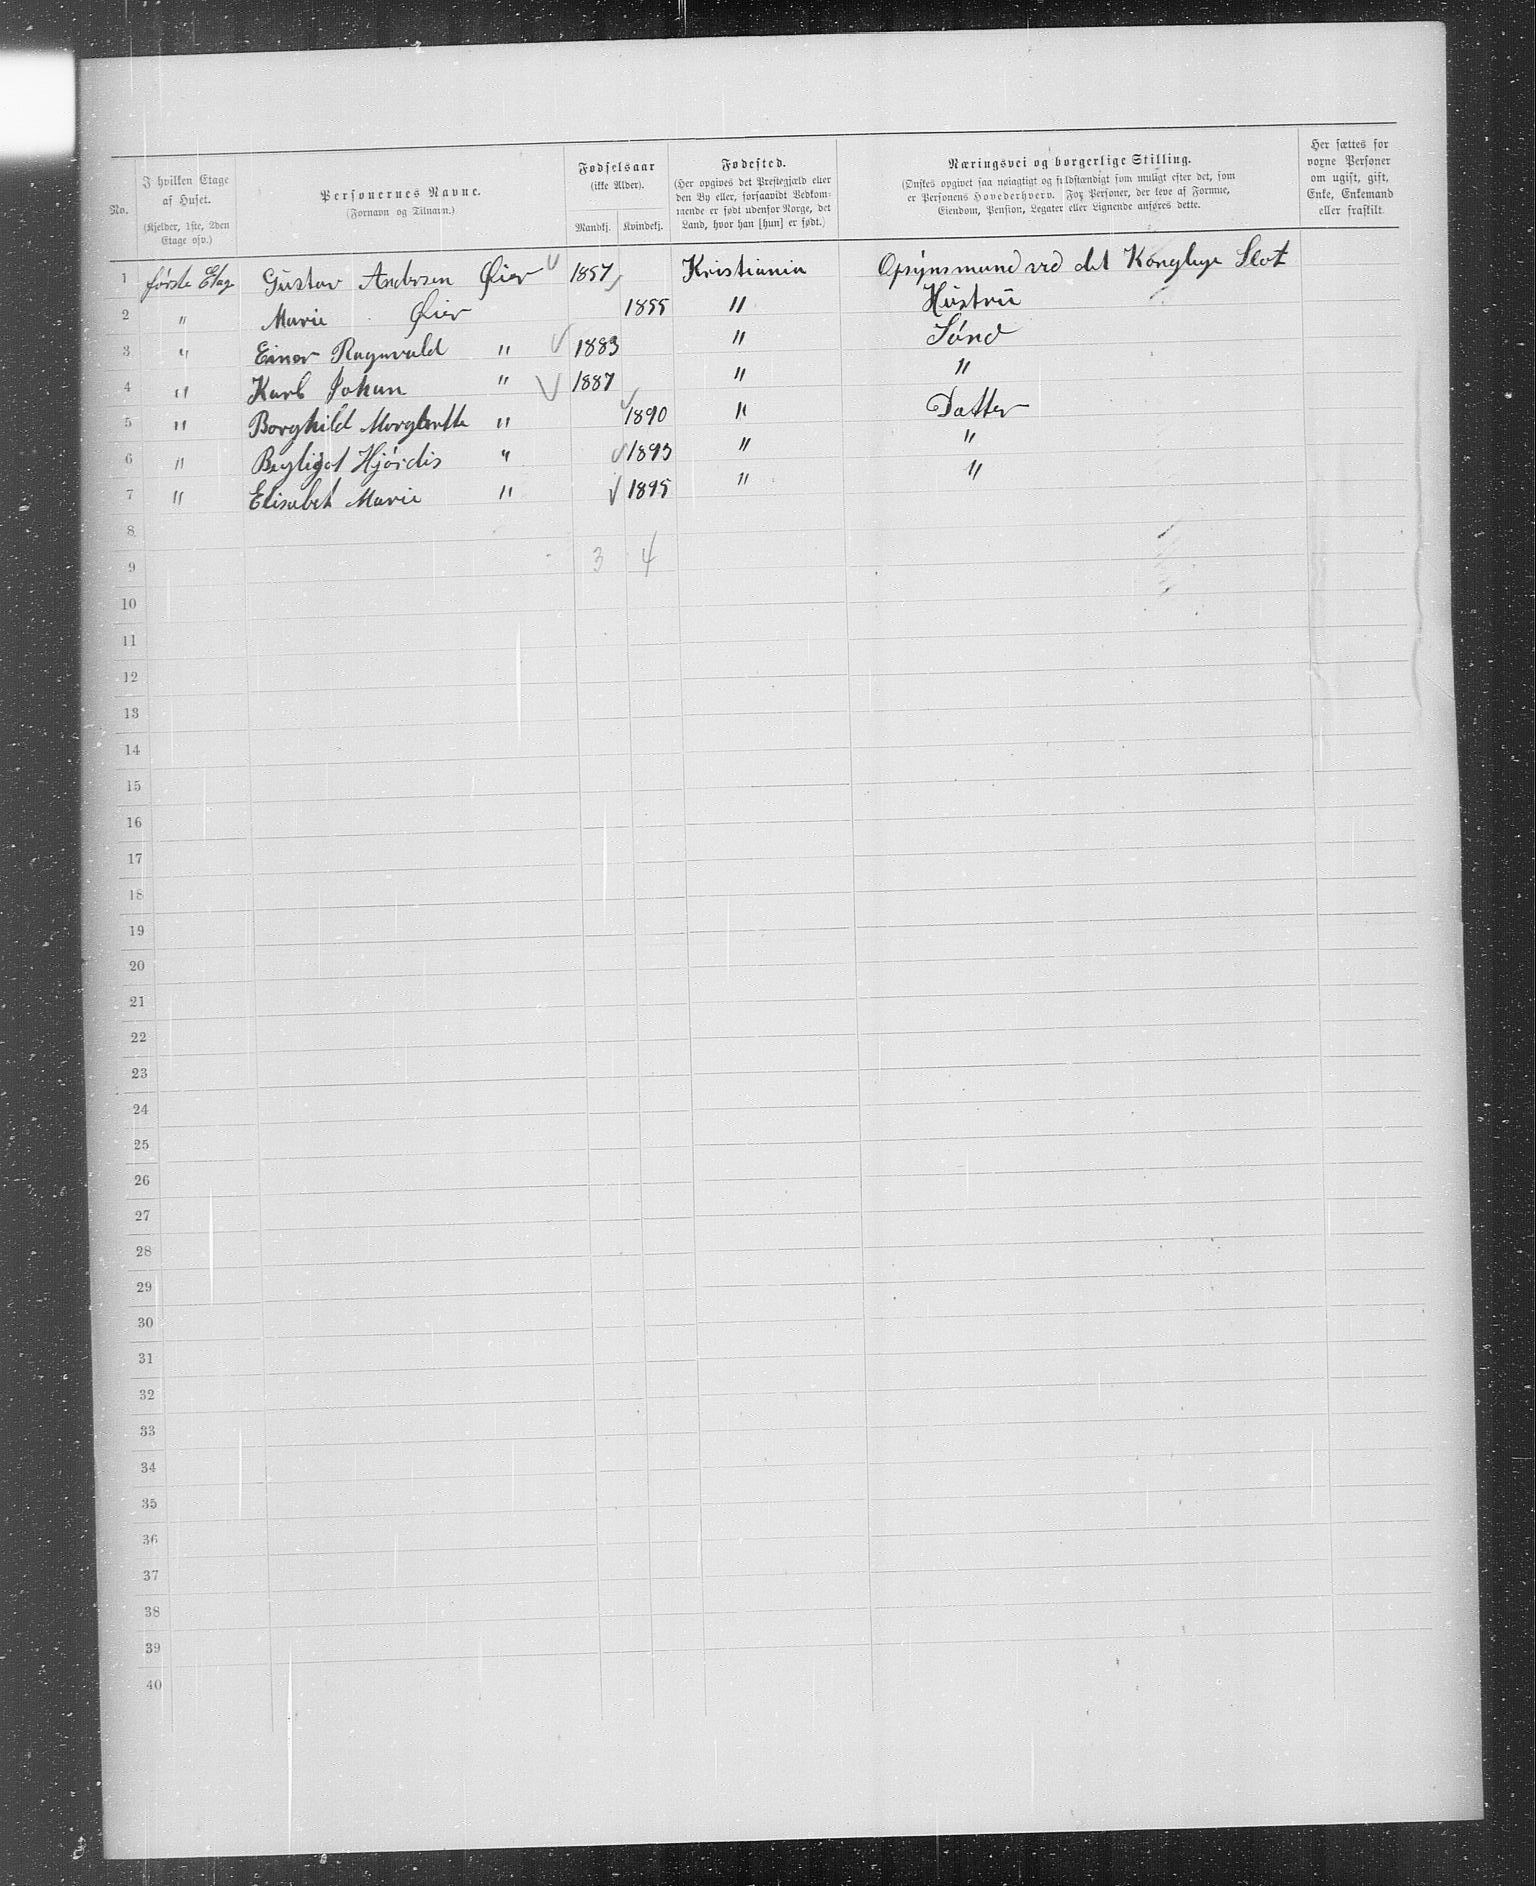 No.
I hvilken Etage af Huset.
(Kjelder, 1ste, 2den Etage osv.)
Personernes Navne.
(Fornavn og Tilnavn.)
Fødselsaar
(ikke Alder).
Mandkj. Kvindekj.
Fødested.
(Her opgives det Prestegjæld eller den By eller, forsaavidt Vedkommende er født udenfor Norge, det Land, hvor han [hun] er født.)
Næringsvei og borgerlige Stilling.
(Ønskes opgivet saa nøiagtigt og fuldstændigt som muligt efter det, som er Personens Hovederhverv. For Personer, der leve af Formue, Eiendom, Pension, Legater eller Lignende anføres dette.
Her sættes for voxne Personer om ugift, gift, Enke, Enkemand eller fraskilt
1 første Etage Gustav Andersen Øier 1857 Kristiania Opsynsmand ved det Kongelige Slot
2 " Marie Øier 1855 " Hustru
3 " Einar Ragnvald " 1883 " Sønd
4 " Karl Johan " 1887 " "
5 " Borghild Margrethe " 1890 " Datter
6 " Hjørdis " 1893 " "
7 " Elisabet Marie " 1895 " "
8
9 3 4
10
11
12
13
14
15
16
17
18
19
20
21
22
23
24
25
26
27
28
29
30
31
32
33
34
35
36
37
38
39
40